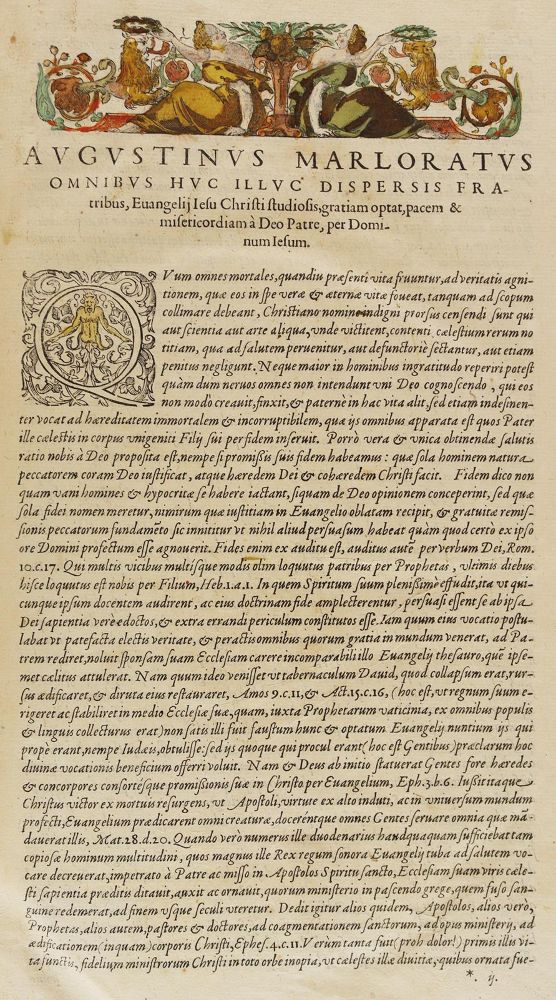 AVGVSTINVS MARLORATVS
OMNIBVS HVC ILLVC DISPERSIS FRA-
tribus, Euangelij Iesu Christi studiosis, gratiam optat, pacem &
misericordiam à Deo Patre, per Domi-
num Iesum.
QVum omnes mortales, quandiu præsenti vita fruuntur, ad veritatis agni-
tionem, quæ eos in spe veræ & æternæ vitæ foueat, tanquam ad scopum
collimare debeant, Christiano nomine indigni prorsus censendi sunt qui
aut scientia aut arte aliqua, vnde victitent, contenti, cælestium rerum no
titiam, qua ad salutem peruenitur, aut defunctoriè sectantur, aut etiam
penitus negligunt. Neque maior in hominibus ingratitudo reperiri potest
quàm dum neruos omnes non intendunt vni Deo cognoscendo, qui eos
non modò creauit, finxit, & paternè in hac vita alit, sed etiam indesinen-
ter vocat ad hæreditatem immortalem & incorruptibilem, quæ ijs omnibus apparata est quos Pater
ille cælestis in corpus vnigeniti Filij sui per fidem inseruit. Porrò vera & vnica obtinendæ salutis
ratio nobis à Deo proposita est, nempe si promissis suis fidem habeamus: quæ sola hominem natura
peccatorem coram Deo iustificat, atque hæredem Dei & cohæredem Christi facit. Fidem dico non
quam vani homines & hypocritæ se habere iactant, siquam de Deo opinionem conceperint, sed quæ
sola fidei nomen meretur, nimirum quæ iustitiam in Euangelio oblatam recipit, & gratuitæ remis-
sionis peccatorum fundamēto sic innititur vt nihil aliud persuasum habeat quàm quod certò ex ipso
ore Domini profectum esse agnouerit. Fides enim ex auditu est, auditus autē per verbum Dei, Rom.
10.c.17. Qui multis vicibus multísque modis olim loquutus patribus per Prophetas, vltimis diebus
hisce loquutus est nobis per Filium, Heb.1.a.1. In quem Spiritum suum plenißimè effudit, ita vt qui-
cunque ipsum docentem audirent, ac eius doctrinam fide amplecterentur, persuasi essent se ab ipsa
Dei sapientia verè edoctos, & extra errandi periculum constitutos esse. Iam quum eius vocatio postu-
labat vt patefacta electis veritate, & peractis omnibus quorum gratia in mundum venerat, ad Pa-
trem rediret, noluit sponsam suam Ecclesiam carere incomparabili illo Euangelij thesauro, quē ipse-
met cælitus attulerat. Nam quum ideo venisset vt tabernaculum Dauid, quod collapsum erat, rur-
sus ædificaret, & diruta eius restauraret, Amos 9.c.11, & Act.15.c.16, (hoc est, vt regnum suum e-
rigeret ac stabiliret in medio Ecclesiæ suæ, quam, iuxta Prophetarum vaticinia, ex omnibus populis
& linguis collecturus erat) non satis illi fuit faustum hunc & optatum Euangelij nuntium ijs qui
propè erant, nempe Iudæis, obtulisse: sed ijs quoque qui procul erant (hoc est Gentibus) præclarum hoc
diuinæ vocationis beneficium offerri voluit. Nam & Deus ab initio statuerat Gentes fore hæredes
& concorpores consortésque promissionis suæ in Christo per Euangelium, Eph.3.b.6. Iußit itaque
Christus victor ex mortuis resurgens, vt Apostoli, virtute ex alto induti, ac in vniuersum mundum
profecti, Euangelium prædicarent omni creaturæ, docerēntque omnes Gentes seruare omnia quæ mā-
dauerat illis, Mat.28.d.20. Quando verò numerus ille duodenarius haudquaquam sufficiebat tam
copiosæ hominum multitudini, quos magnus ille Rex regum sonora Euangelij tuba ad salutem vo-
care decreuerat, impetrato à Patre ac misso in Apostolos Spiritu sancto, Ecclesiam suam viris cæle-
sti sapientia præditis ditauit, auxit ac ornauit, quorum ministerio in pascendo grege, quem fuso san-
guine redemerat, ad finem vsque seculi vteretur. Dedit igitur alios quidem, Apostolos, alios verò,
Prophetas, alios autem, pastores & doctores, ad coagmentationem sanctorum, ad opus ministerij, ad
ædificationem (inquam) corporis Christi, Ephes.4.c.11. Verum tanta fuit (proh dolor!) primis illis vi-
ta functis, fidelium ministrorum Christi in toto orbe inopia, vt cælestes illæ diuitiæ, quibus ornata fue-
*. ij.